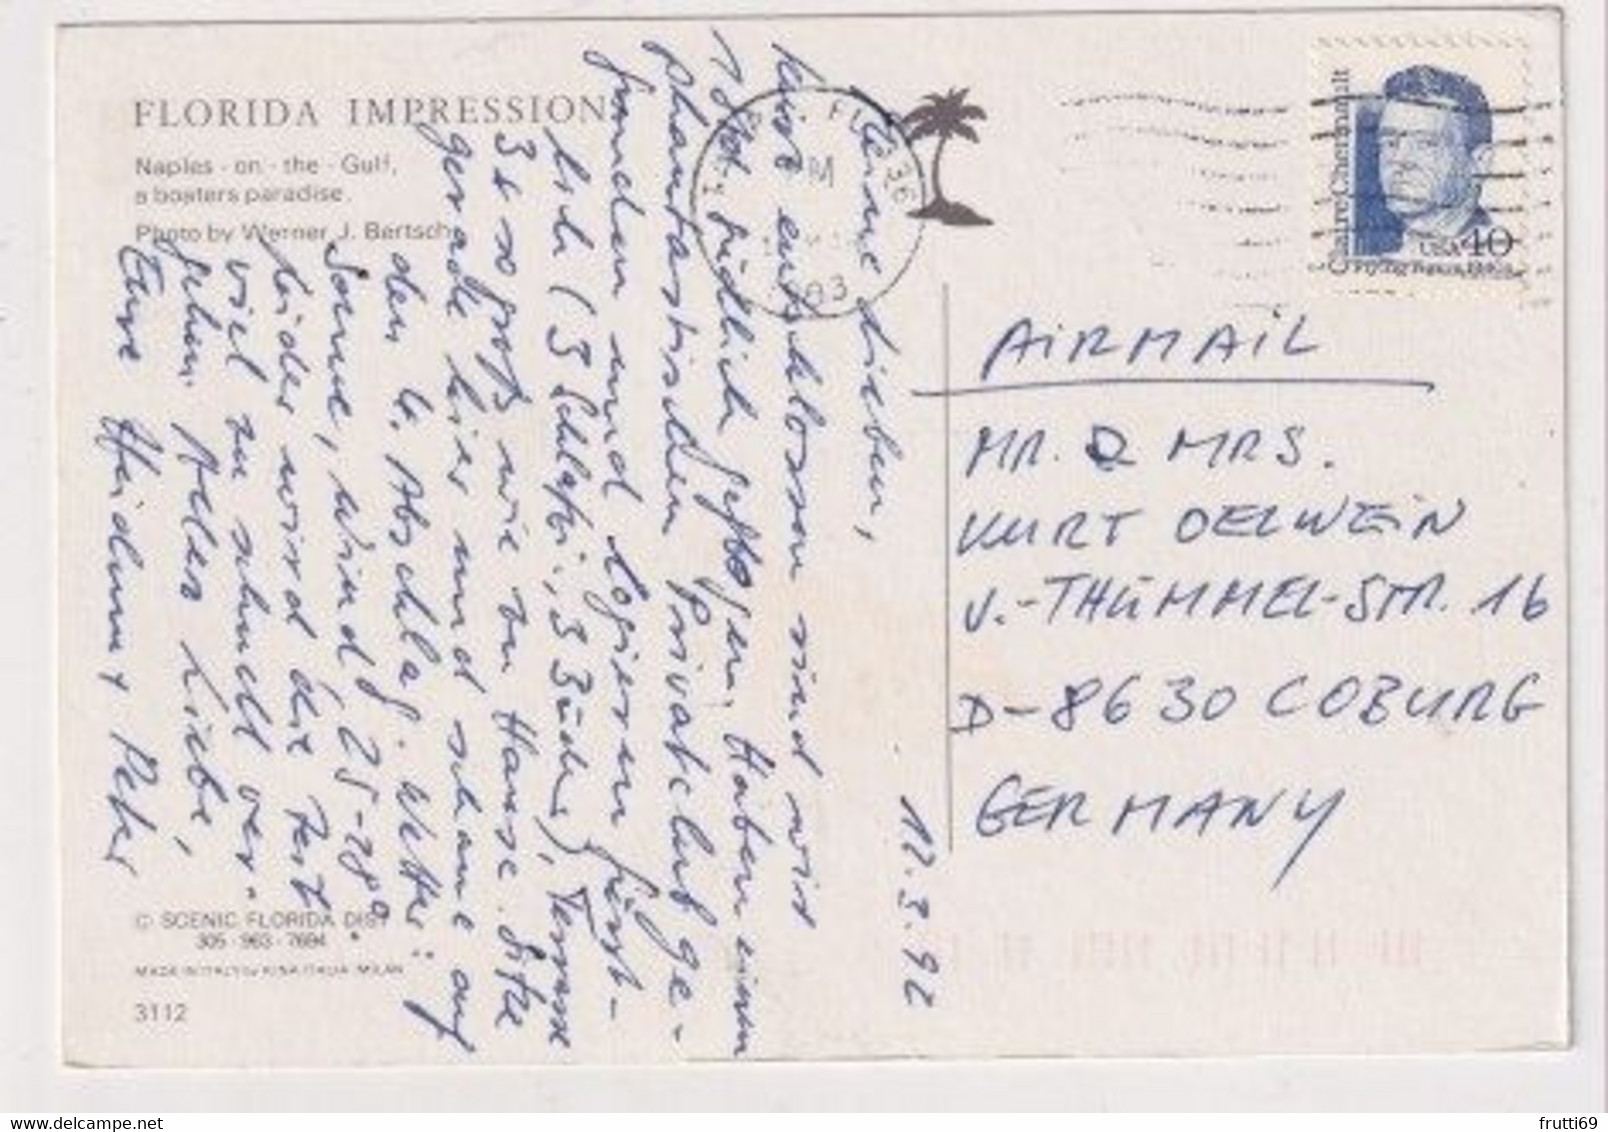 FLORIDA IMPRESSIONS
Naples - on - the - Gulf,
a boaters paradise.
Photo by Werner J. Bertsch
Meine Lieben,
kurz entschlossen sind wir
südlich geflogen. Haben einen
phantastischen Privatclub ge-
funden und logieren fürst-
lich (3 Schlafzi., 3 Bäder), Terrasse
3x so groß wie zu Hause. Sitze
gerade hier und schaue auf
den 4. Abschlag. Wetter:
Sonne, Wind, 25-28°
leider wird die Zeit
viel zu schnell ver-
gehen. Alles Liebe,
Eure Heidum + Peter
12.3.92
© SCENIC FLORIDA DIST
305 - 963 - 7694
MADE IN ITALY by KINA ITALIA MILAN
3112
FL 336
PM
Claire Chennault
USA 40
Flying Tigers, 1940s
AIRMAIL
MR. & MRS.
KURT OELWEIN
V.-THÜMMEL-STR. 16
D-8630 COBURG
GERMANY
www.delcampe.net
frutti69